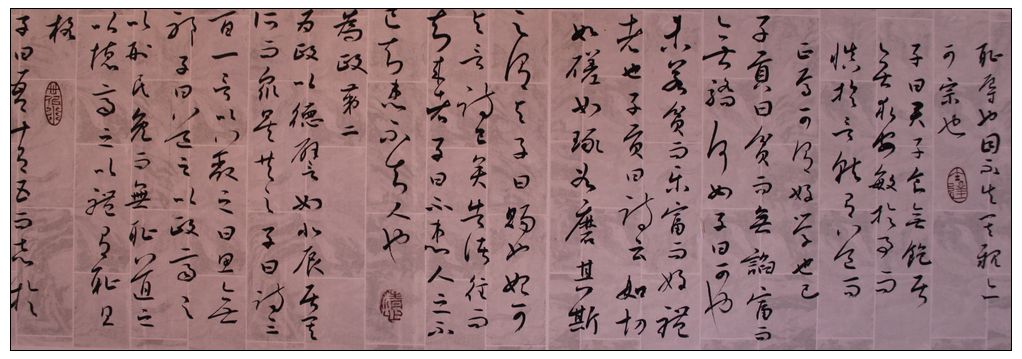 恥辱也因不失其親亦
可宗也
子曰君子食無飽居
無求安敏於事而
慎於言就有道而
正焉可謂好學也已
子貢曰貧而無諂富而
無驕何如子曰可也
未若貧而樂富而好禮
者也子貢曰詩云如切
如磋如琢如磨其斯
之謂與子曰賜也始可
與言詩已矣告諸往而
知來者子曰不患人之不
己知患不知人也
為政第二
為政以德譬如北辰居其
所而眾星共之子曰詩三
百一言以蔽之曰思無
邪子曰道之以政齊之
以刑民免而無恥道之
以德齊之以禮有恥且
格
子曰吾十有五而志於